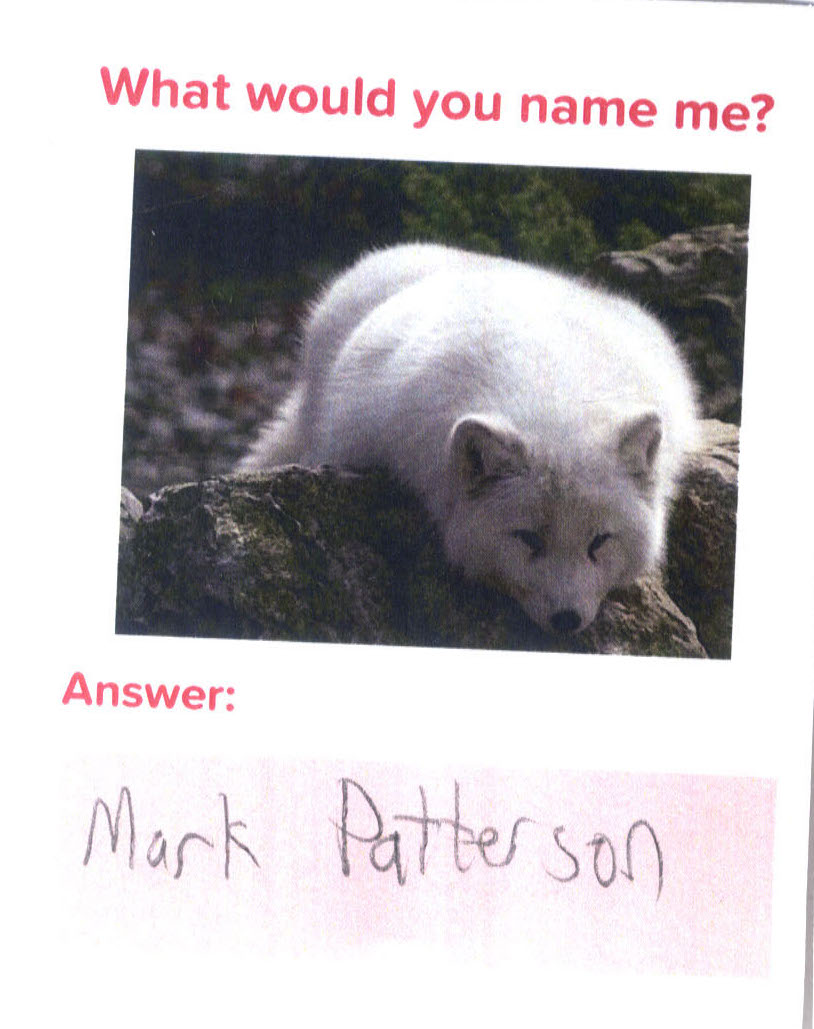 What would you name me?
Answer:
Mark Patterson